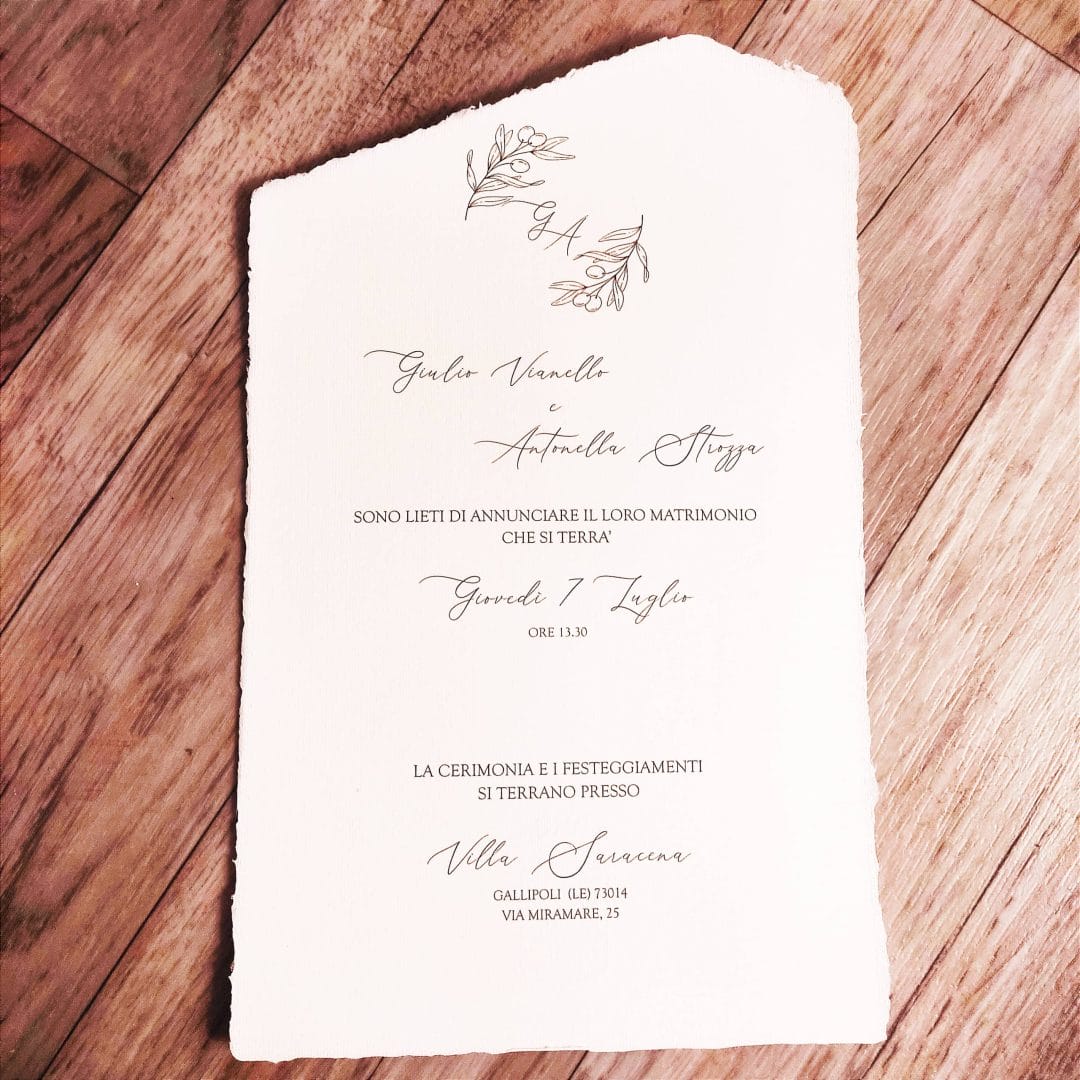 GA
Giulio Vianello
e
Antonella Strozza
SONO LIETI DI ANNUNCIARE IL LORO MATRIMONIO
CHE SI TERRA'
Giovedì 7 Luglio
ORE 13.30
LA CERIMONIA E I FESTEGGIAMENTI
SI TERRANO PRESSO
Villa Saracena
GALLIPOLI (LE) 73014
VIA MIRAMARE, 25